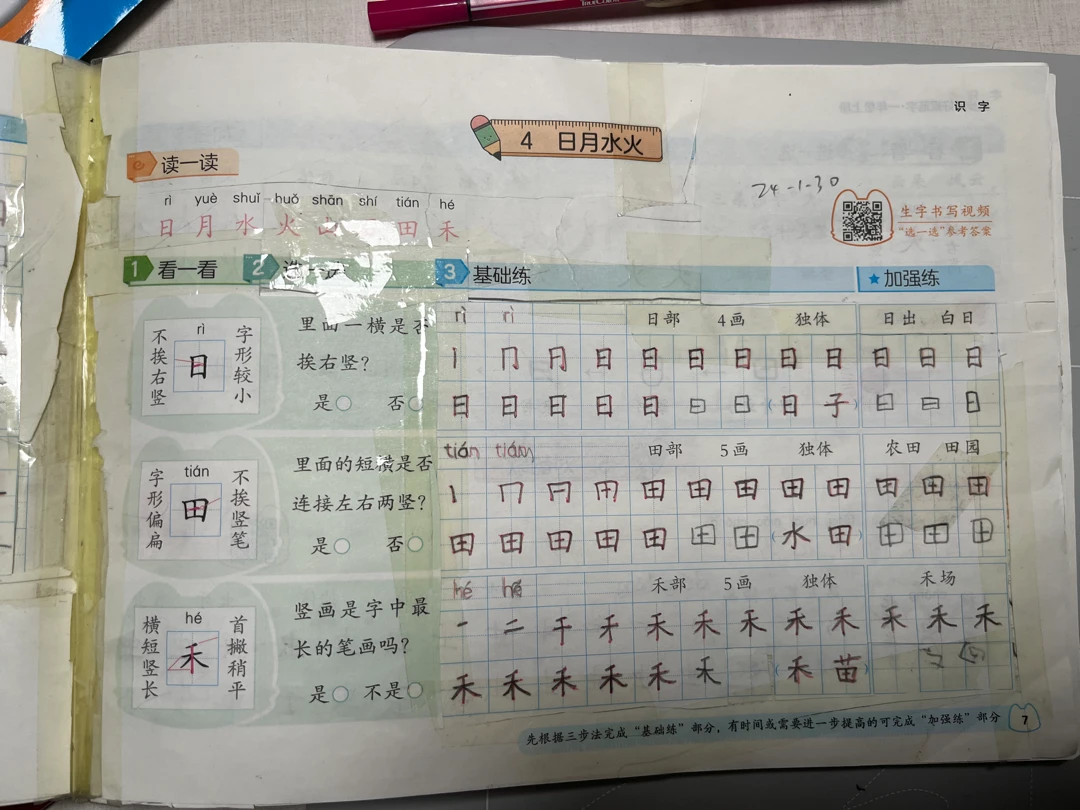 识字
4 日月水火
读一读
24-1-30
rì yuè shuǐ huǒ shān shí tián hé
日 月 水 火 山 田 禾
生字书写视频
“选一选”参考答案
1 看一看
2 选一选
3 基础练
★加强练
不挨右竖
rì
日
字形较小
里面一横是否
挨右竖?
是○ 否○
rì rì
日部 4画 独体
日出 白日
丨 冂 日 日 日 日 日 日 日 日 日
日 日 日 日 日 日 日 (日 子) 日 日 日
字形偏扁
tián
田
不挨竖笔
里面的短横是否
连接左右两竖?
是○ 否○
tián tián
田部 5画 独体
农田 田园
丨 冂 田 田 田 田 田 田 田 田
田 田 田 田 田 田 田 (水 田) 田 田 田
横短竖长
hé
禾
首撇稍平
竖画是字中最
长的笔画吗?
是○ 不是○
hé hé
禾部 5画 独体
禾场
一 二 千 禾 禾 禾 禾 禾 禾 禾 禾
禾 禾 禾 禾 禾 禾 (禾 苗)
先根据三步法完成“基础练”部分,有时间或需要进一步提高的可完成“加强练”部分
7